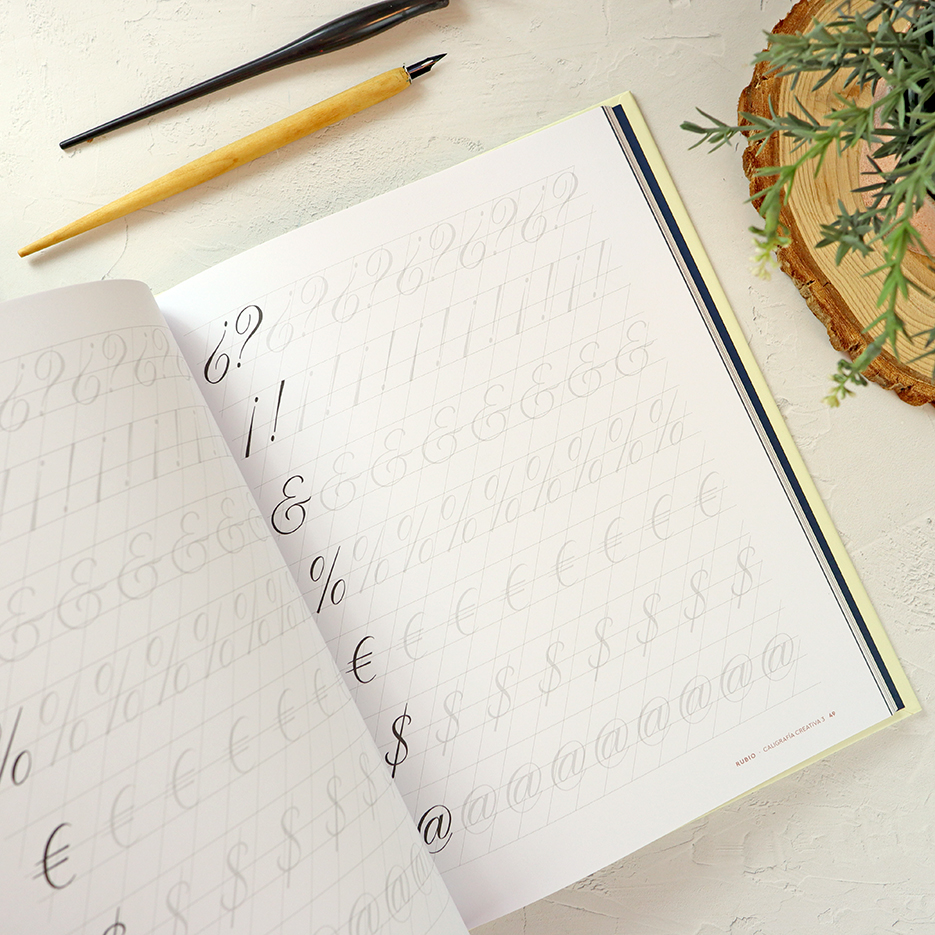 ¿? ¿? ¿?
¡! ¡! ¡!
& & & & & &
% % % % % %
€ € € € € €
$ $ $ $ $
@ @ @
¿? ¿? ¿? ¿? ¿? ¿?
¡! ¡! ¡! ¡! ¡! ¡! ¡!
& & & & & & & & &
% % % % % % % % %
€ € € € € € € €
$ $ $ $ $ $ $ $
@ @ @ @ @ @ @ @ @
RUBIO · CALIGRAFÍA CREATIVA 3 49